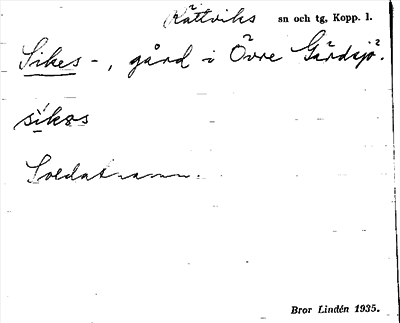 Rättviks sn och tg, Kopp. l.
Sikes -, gård i Övre Gärdsjö.
síkəs
Soldatnamn.
Bror Lindén 1935.